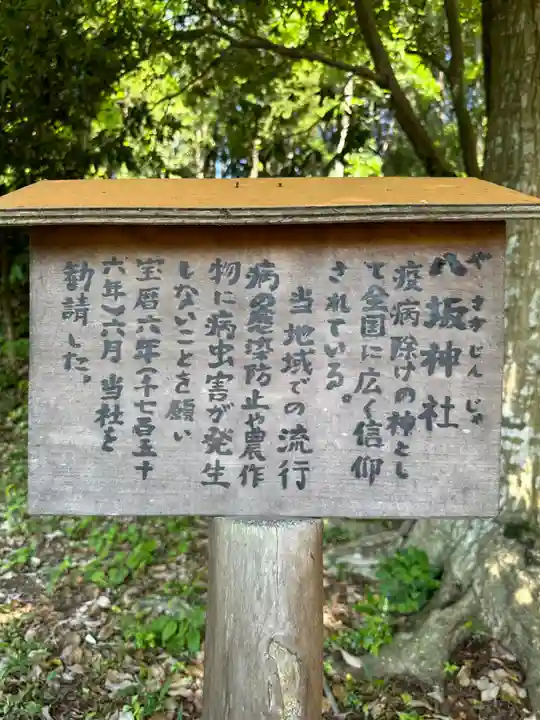 八坂神社
や、さか じん じゃ
疫病除けの神とし
て全国に広く信仰
されている。
当地域での流行
病の感染防止や農作
物に病虫害が発生
しないことを願い
宝暦六年(千七百五十
六年)六月 当社を
勧請した。